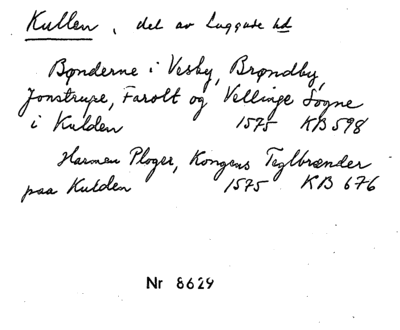 Kullen, del av Luggude hd
Bønderne i Vesby, Brøndby,
Jonstrupe, Farolt og Vellinge Sogne
i Kulden 1575 KB 598
Harmen Ploger, Kongens Teglbrænder
paa Kulden 1575 KB 676
Nr 8629